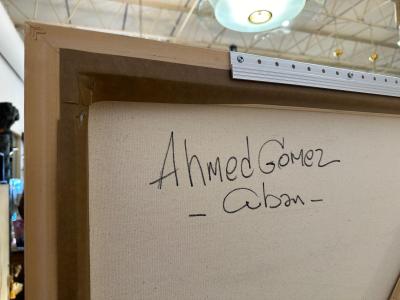 Ahmed Gomez
- Cuban -